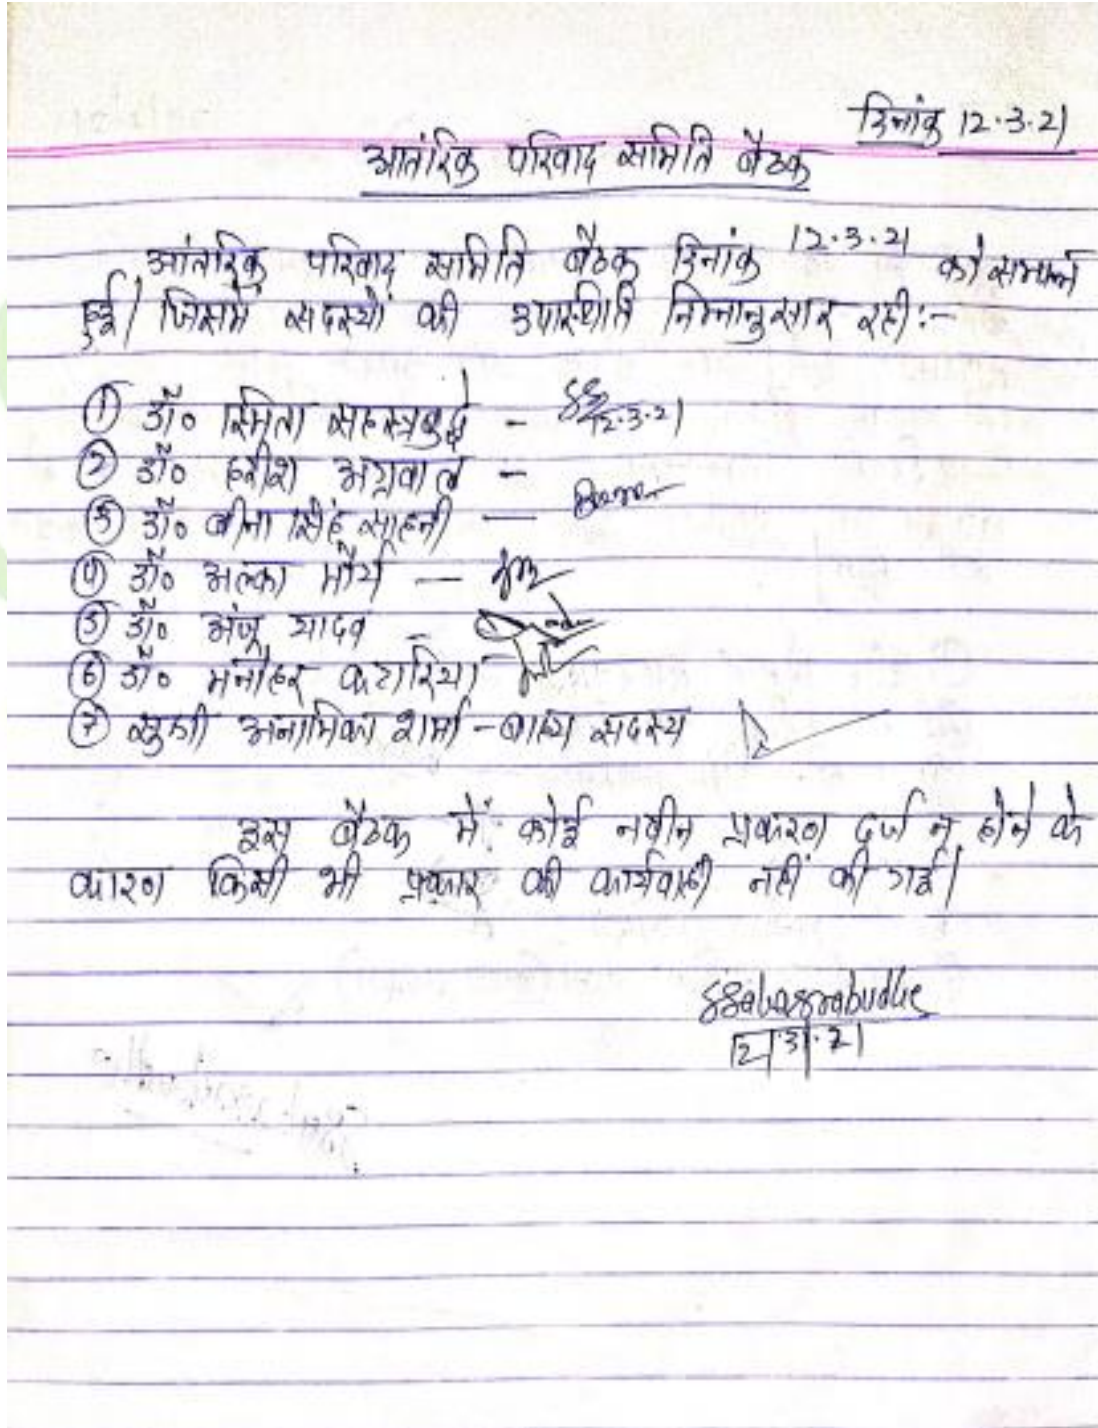 दिनांक 12.3.21
आतंरिक परिवाद समिति बैठक
आंतरिक परिवाद समिति बैठक दिनांक 12.3.21 को सम्पन्न
हुई। जिसमें सदस्यों की उपस्थिति निम्नानुसार रही:-
① डॉ० स्मिता सहस्त्रबुद्धे - 12.3.21
② डॉ० हरीश अग्रवाल -
③ डॉ० बीना सिंह साहनी —
④ डॉ० अल्का मौर्य —
⑤ डॉ० अंजू यादव -
⑥ डॉ० मनोहर कटारिया
⑦ सुश्री अनामिका शर्मा - बाह्य सदस्य
इस बैठक में कोई नवीन प्रकरण दर्ज न होने के
कारण किसी भी प्रकार की कार्यवाही नहीं की गई।
SSahasrabudhe
12.3.21